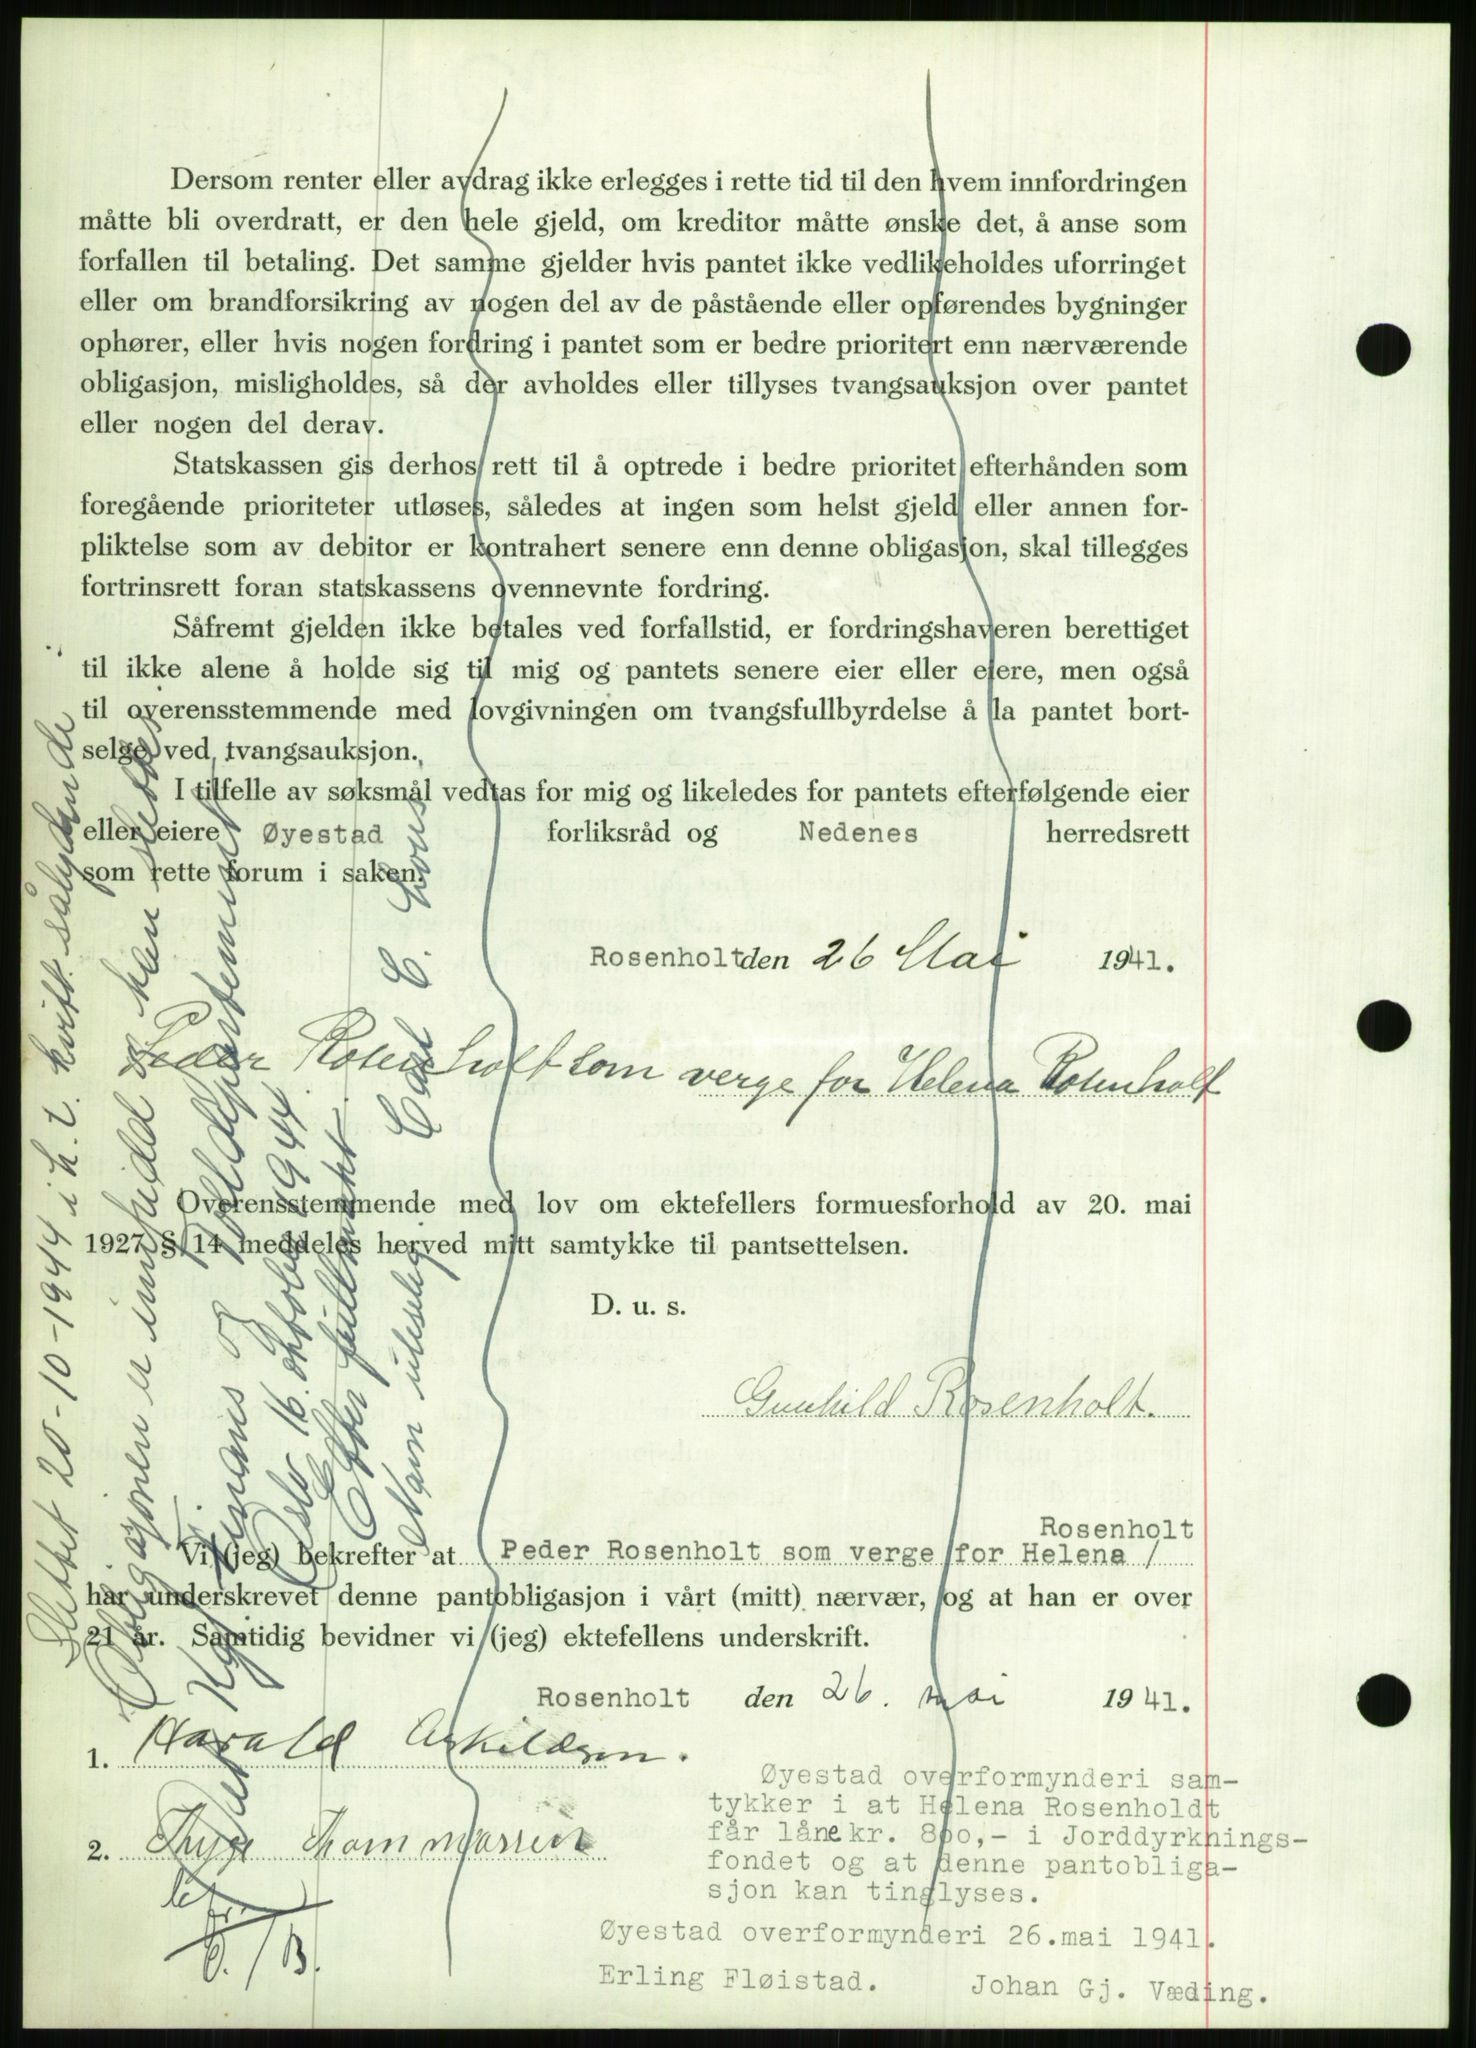 Dersom renter eller avdrag ikke erlegges i rette tid til den hvem innfordringen
måtte bli overdratt, er den hele gjeld, om kreditor måtte ønske det, å anse som
forfallen til betaling. Det samme gjelder hvis pantet ikke vedlikeholdes uforringet
eller om brandforsikring av nogen del av de påstående eller opførendes bygninger
ophører, eller hvis nogen fordring i pantet som er bedre prioritert enn nærværende
obligasjon, misligholdes, så der avholdes eller tillyses tvangsauksjon over pantet
eller nogen del derav.
Statskassen gis derhos rett til å optrede i bedre prioritet efterhånden som
foregående prioriteter utløses, således at ingen som helst gjeld eller annen for-
pliktelse som av debitor er kontrahert senere enn denne obligasjon, skal tillegges
fortrinsrett foran statskassens ovennevnte fordring.
Såfremt gjelden ikke betales ved forfallstid, er fordringshaveren berettiget
til ikke alene å holde sig til mig og pantets senere eier eller eiere, men også
til overensstemmende med lovgivningen om tvangsfullbyrdelse å la pantet bort-
selge ved tvangsauksjon.
I tilfelle av søksmål vedtas for mig og likeledes for pantets efterfølgende eier
eller eiere Øyestad forliksråd og Nedenes herredsrett
som rette forum i saken.
Rosenholt den 26 Mai 1941.
Peder Rosenholt som verge for Helena Rosenholt
Overensstemmende med lov om ektefellers formuesforhold av 20. mai
1927 § 14 meddeles herved mitt samtykke til pantsettelsen.
D. u. s.
Gunhild Rosenholt.
Rosenholt
Vi (jeg) bekrefter at Peder Rosenholt som verge for Helena /
har underskrevet denne pantobligasjon i vårt (mitt) nærvær, og at han er over
21 år. Samtidig bevidner vi (jeg) ektefellens underskrift.
Rosenholt den 26. mai 1941.
1. Harald Askildsen.
2. Thyge Thommassen
Øyestad overformynderi sam-
tykker i at Helena Rosenholdt
får låne kr. 800,- i Jorddyrknings-
fondet og at denne pantobliga-
sjon kan tinglyses.
Øyestad overformynderi 26.mai 1941.
Erling Fløistad. Johan Gj. Væding.
Slettet 20-10-1944 i h. t. kvitt. sålydende
Obligasjonen er innfridd og kan slettes
Det Kgl. Finans og Tolldepartement
Oslo 16. oktober 1944.
Etter fullmakt
Navn uleselig Carl C. Lous